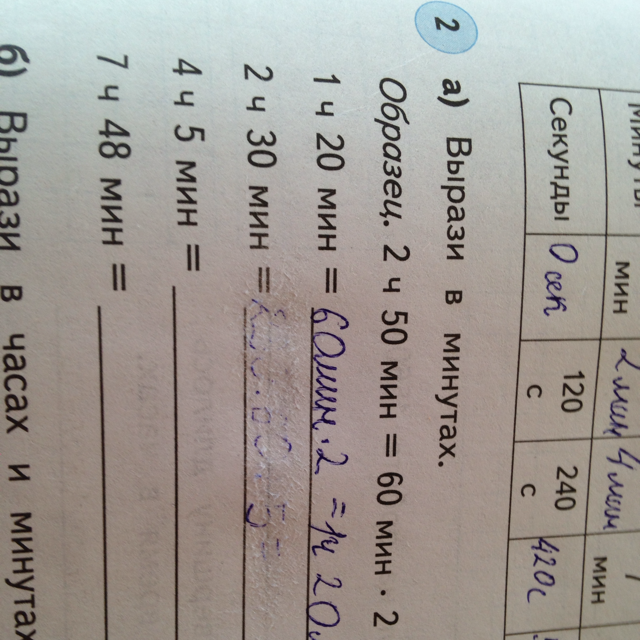 Минуты мин 2 мин 4 мин мин
Секунды 0 сек 120 с 240 с 420с
2 а) Вырази в минутах.
Образец. 2 ч 50 мин = 60 мин · 2
1 ч 20 мин = 60мин·2 =1ч 20м
2 ч 30 мин =
4 ч 5 мин =
7 ч 48 мин =
б) Вырази в часах и минутах